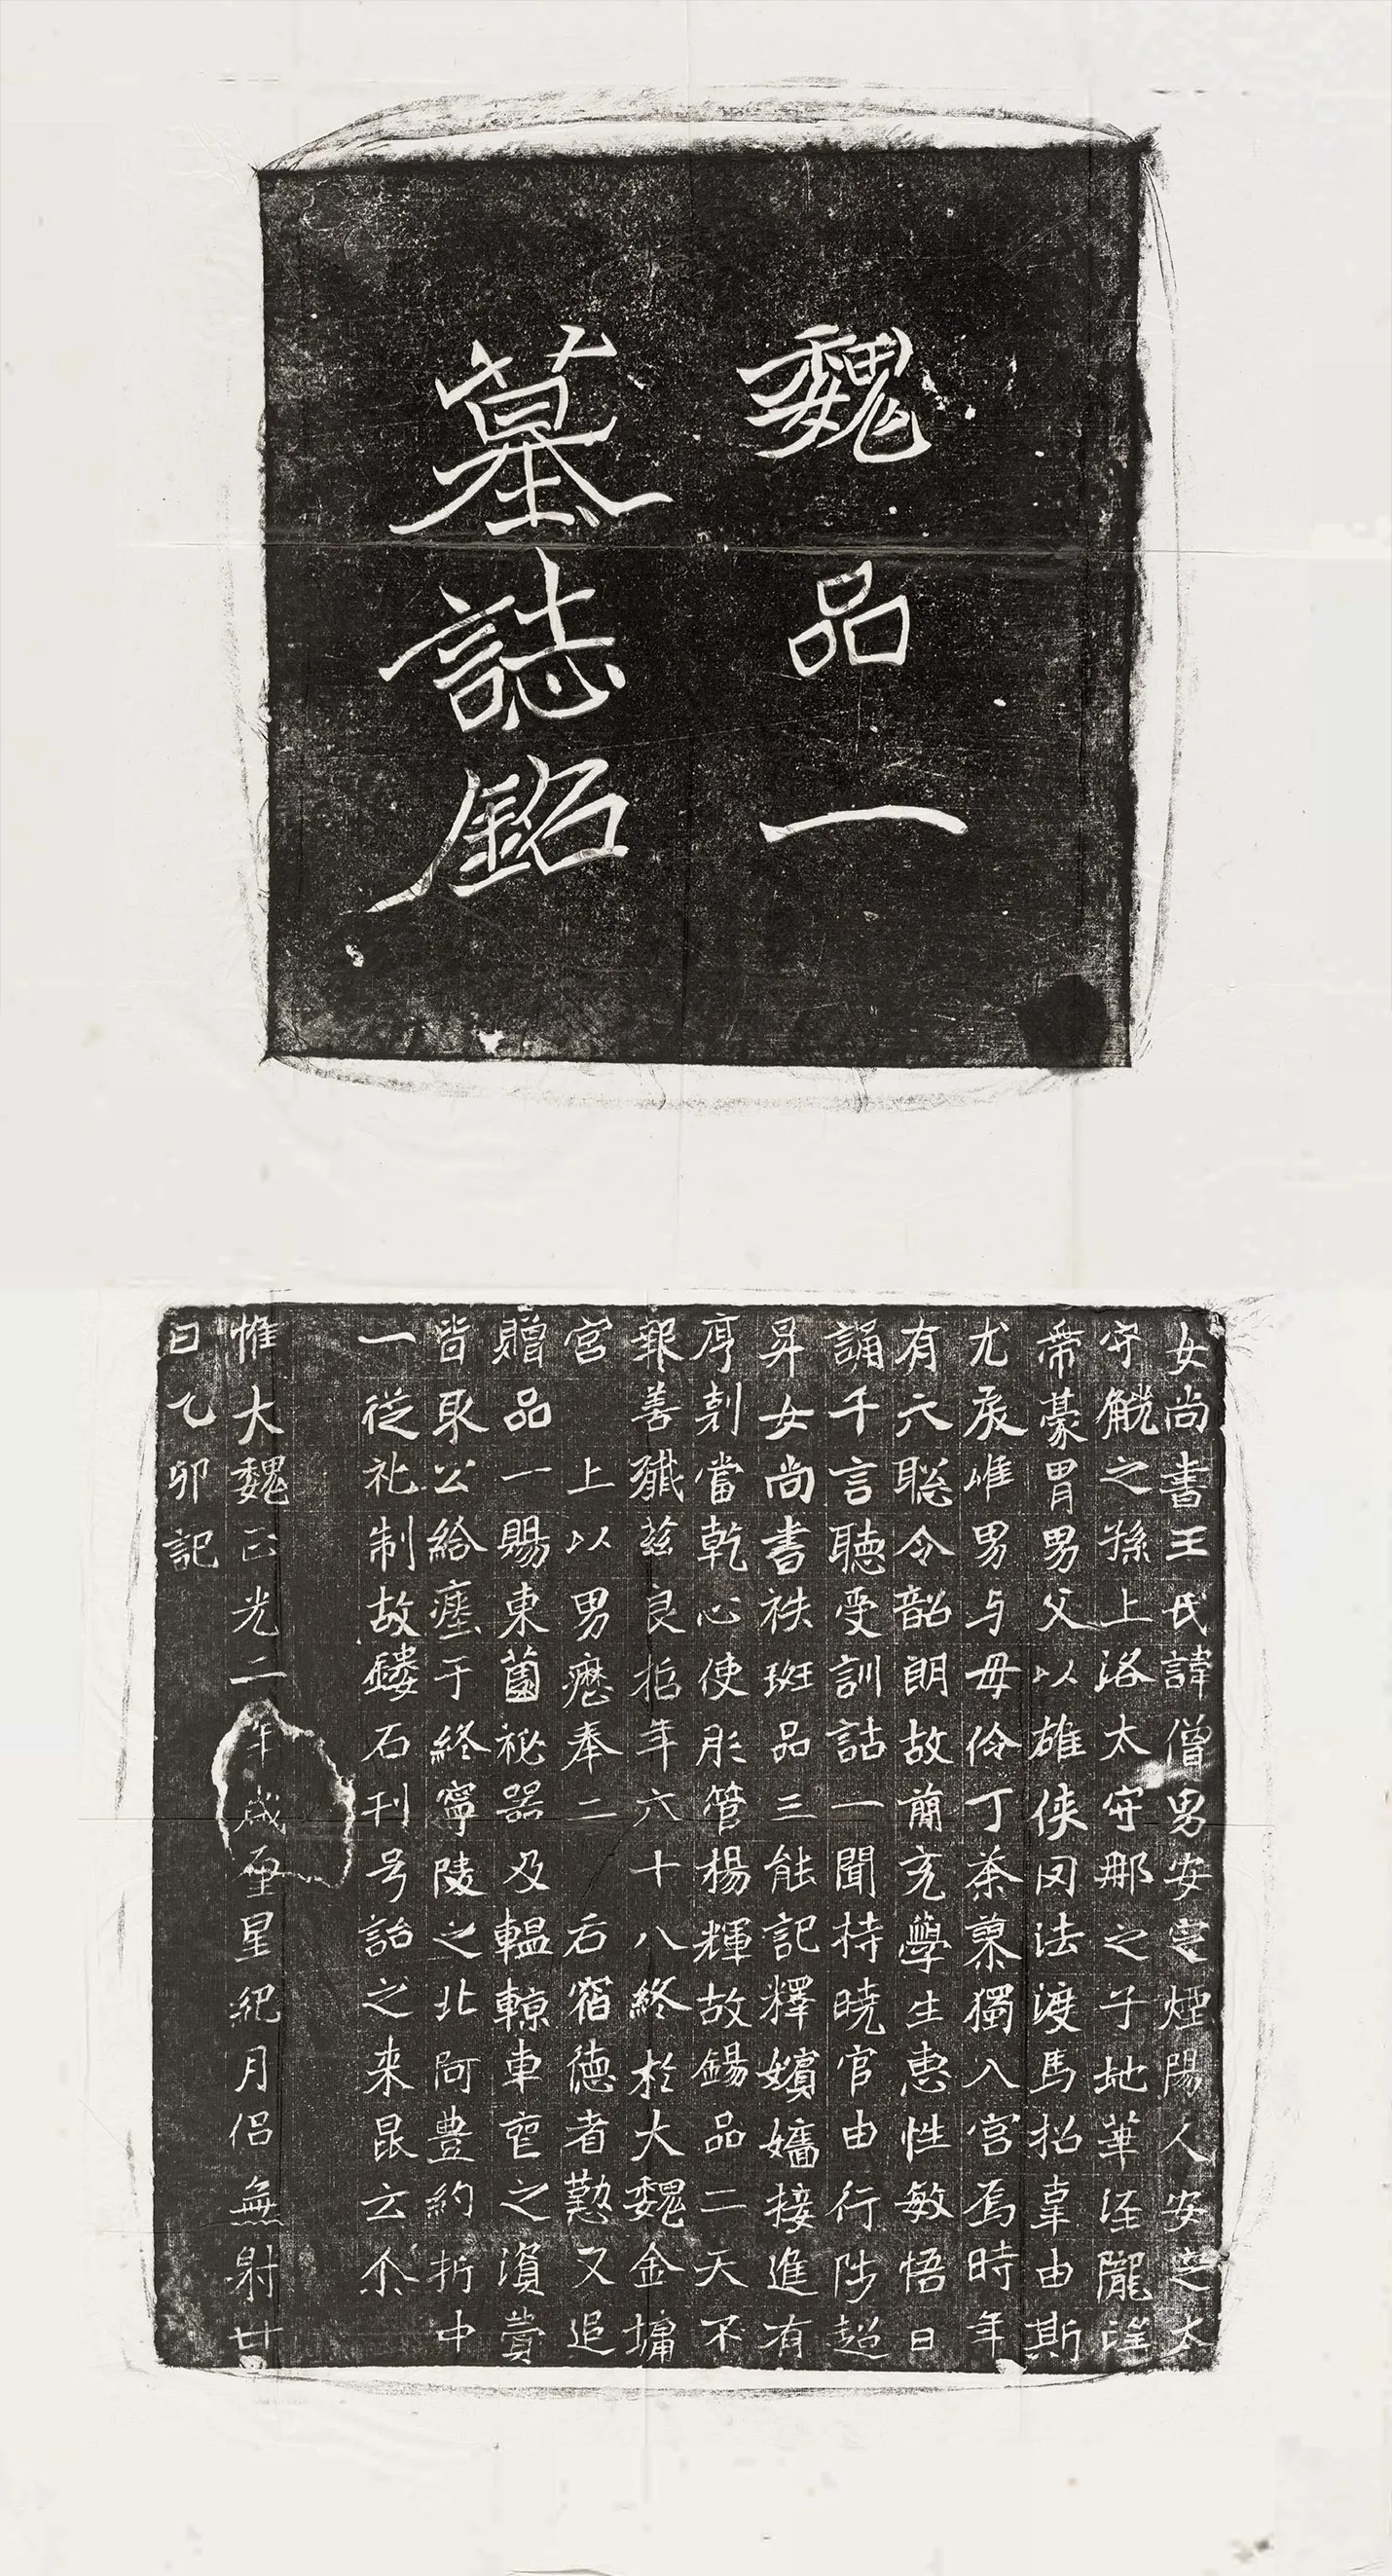 魏品一
墓誌銘
女尚書王氏諱僧男安定煙陽人安定太
守觥之孫上洛太守那之子地華涇隴望
帶豪冑男父以雄俠罔法渡馬招辜由斯
尤戾唯男与母伶丁荼蓼獨入宮焉時年
有六聡令韶朗故簡充學生惠性敏悟日
誦千言聽受訓詁一聞持曉官由行陟超
昇女尚書袟班品三能記釋嬪嬙接進有
序剋當乾心使彤管楊輝故錫品二天不
報善殲茲良哲年六十八終於大魏金墉
宮上以男歷奉二后宿德者懃又追
贈品一賜東薗秘器及轀輬車危之濱賷
皆取公給瘞于終寧陵之北阿豊約折中
一從礼制故鏤石刊号詒之来昆云尒
惟大魏正光二年歲在星紀月侣無射廿
日乙卯記